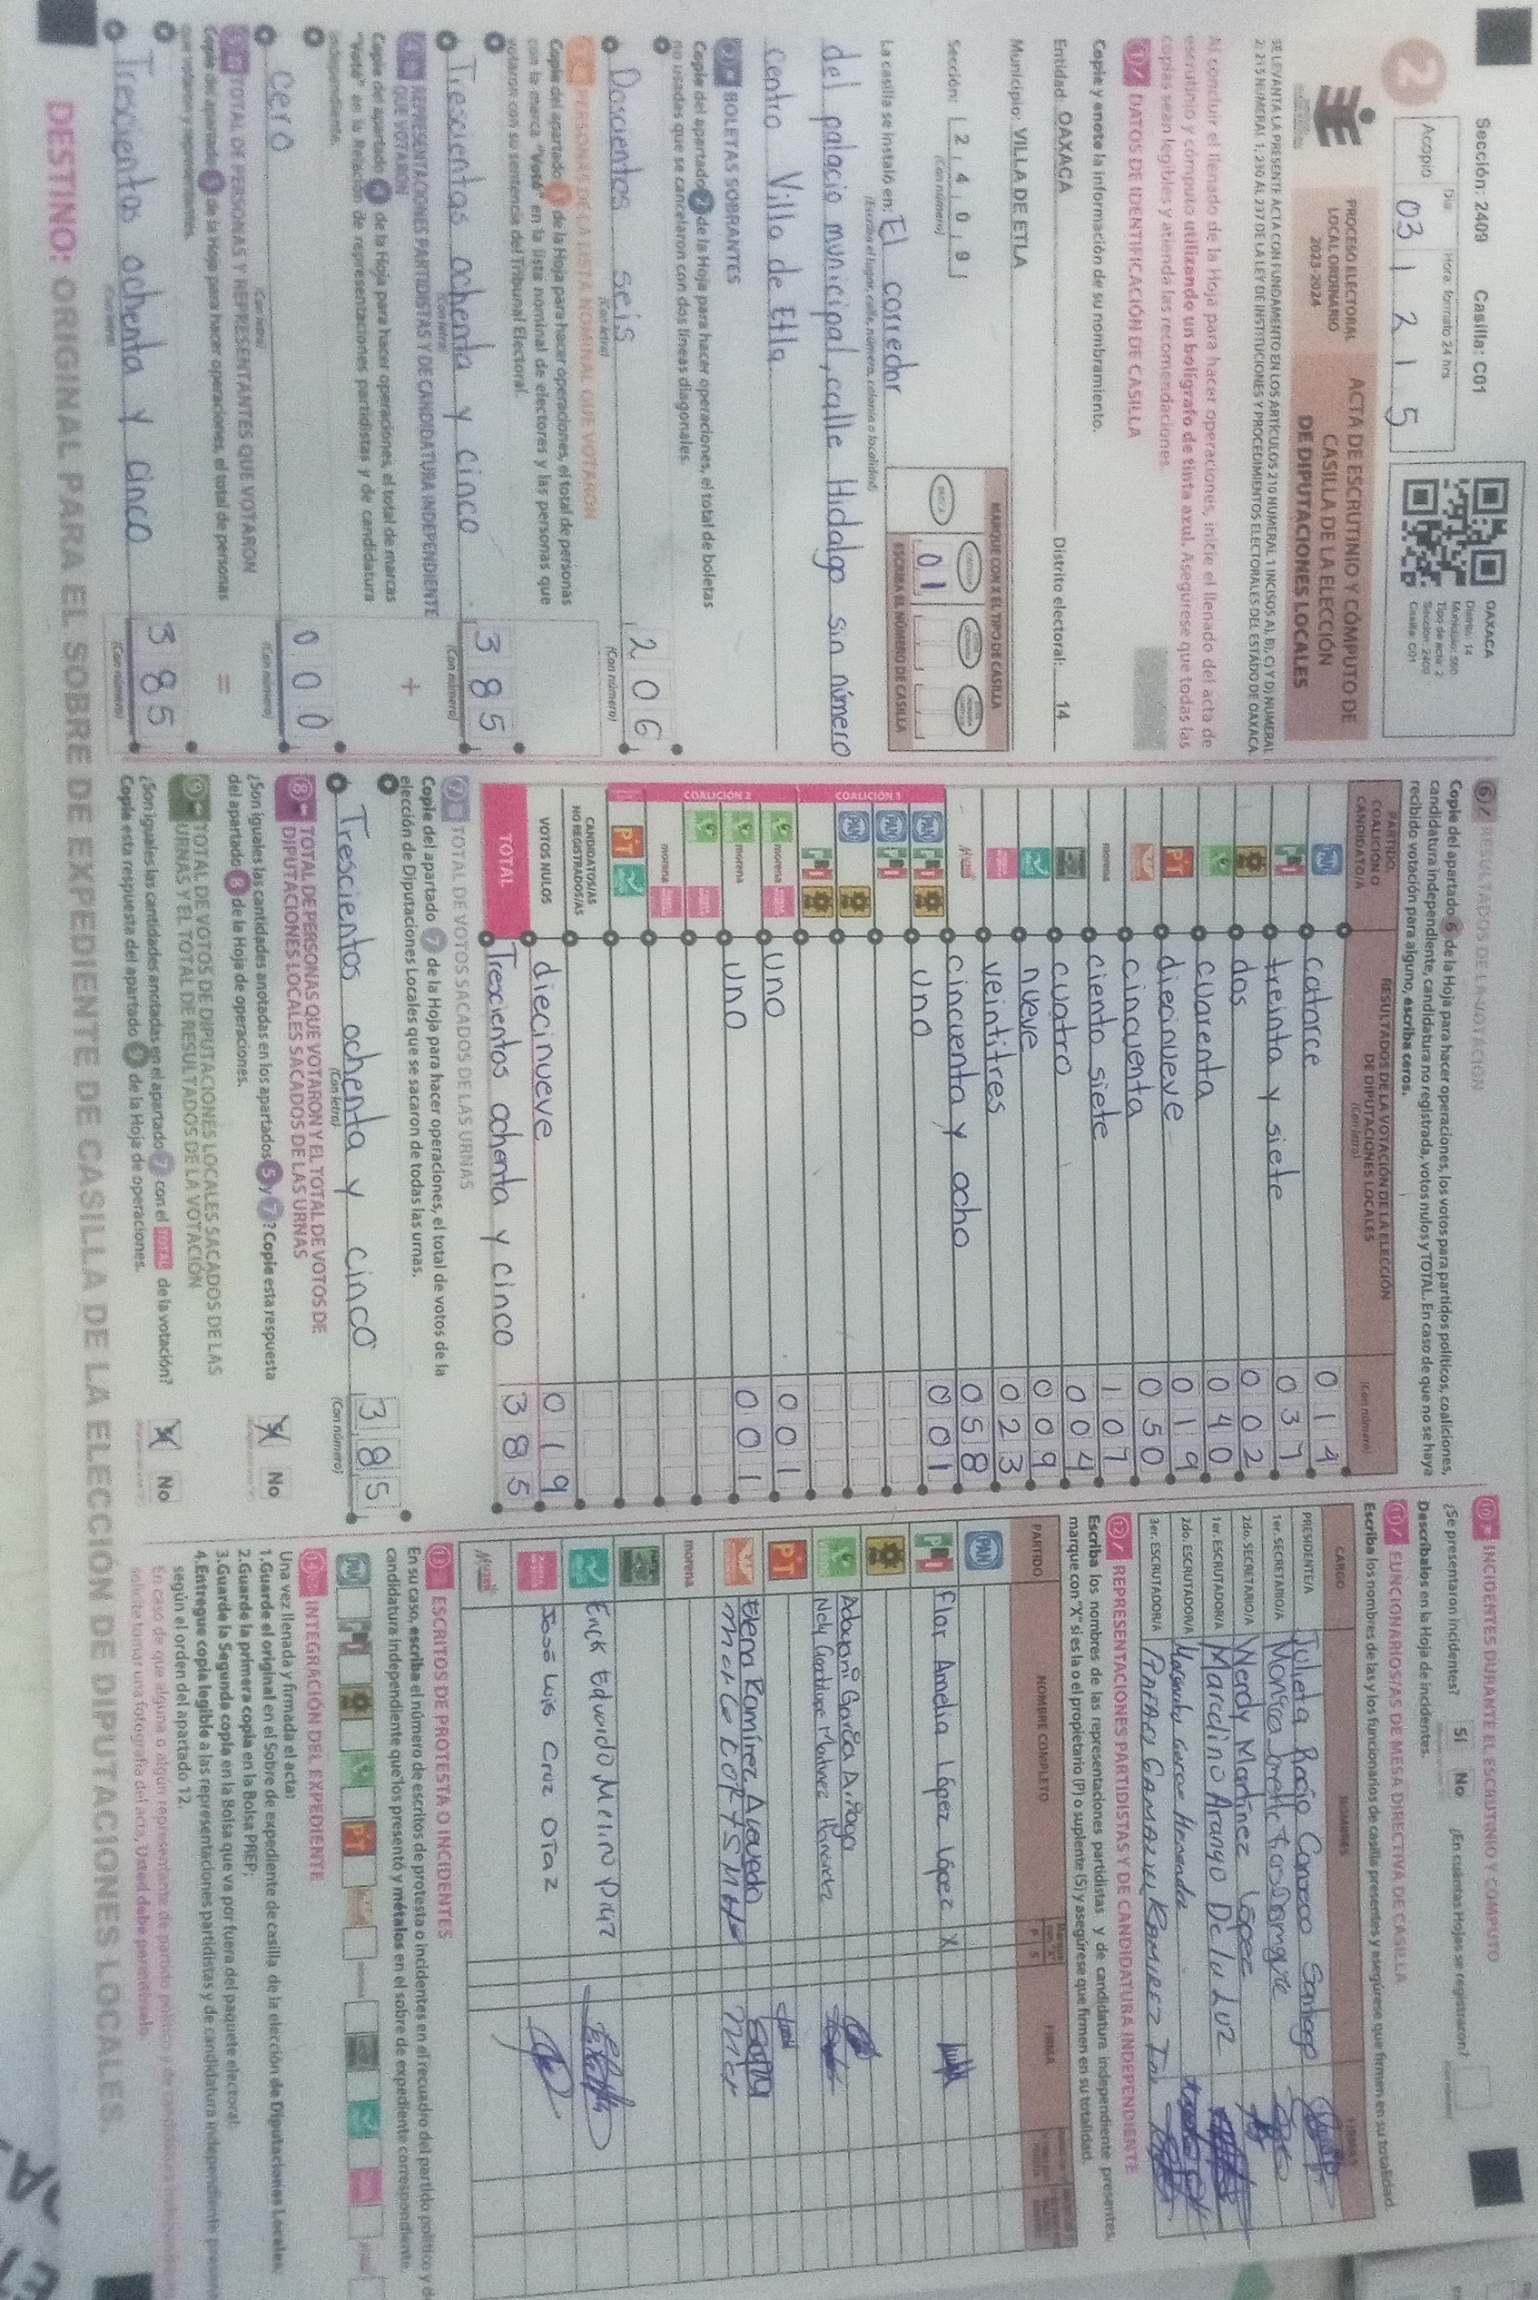 Sección: 2409 Casilla: C01
2
Día Hora: formato 24 hrs
Acopio 03 1215
OAXACA
Distrito: 14
Tipo de acta: 2
Casilla: C01
PROCESO ELECTORAL
LOCAL ORDINARIO
2023-2024
ACTA DE ESCRUTINIO Y CÓMPUTO DE
CASILLA DE LA ELECCIÓN
DE DIPUTACIONES LOCALES
SE LEVANTA LA PRESENTE ACTA CON FUNDAMENTO EN LOS ARTÍCULOS 210 NUMERAL 1 INCISOS A), B), C) Y D) NUMERAL
2; 215 NUMERAL 1; 230 AL 237 DE LA LEY DE INSTITUCIONES Y PROCEDIMIENTOS ELECTORALES DEL ESTADO DE OAXACA
Al concluir el llenado de la Hoja para hacer operaciones, inicie el llenado del acta de
escrutinio y cómputo utilizando un bolígrafo de tinta azul. Asegúrese que todas las
copias sean legibles y atienda las recomendaciones.
1 DATOS DE IDENTIFICACIÓN DE CASILLA
Copie y anote la información de su nombramiento.
Entidad: OAXACA Distrito electoral: 14
Municipio: VILLA DE ETLA
Sección: 2 4 0 9
(Con número)
MARQUE CON X EL TIPO DE CASILLA
01
ESCRIBA EL NÚMERO DE CASILLA
La casilla se instaló en: El corredor
(Escriba el lugar, calle, número, colonia o localidad)
del palacio municipal, calle Hidalgo sin número
centro Villa de Etla
2 BOLETAS SOBRANTES
Copie del apartado 2 de la Hoja para hacer operaciones, el total de boletas
no usadas que se cancelaron con dos líneas diagonales.
Doscientos seis 206
(Con letra) (Con número)
3 PERSONAS DE LA LISTA NOMINAL QUE VOTARON
Copie del apartado 3 de la Hoja para hacer operaciones, el total de personas
con la marca "Votó" en la lista nominal de electores y las personas que
votaron con su sentencia del Tribunal Electoral.
Trescientos ochenta y cinco 385
(Con letra) (Con número)
4 REPRESENTACIONES PARTIDISTAS Y DE CANDIDATURA INDEPENDIENTE
QUE VOTARON +
Copie del apartado 4 de la Hoja para hacer operaciones, el total de marcas
"Votó" en la Relación de representaciones partidistas y de candidatura
independiente.
cero 000
(Con letra) (Con número)
5 TOTAL DE PERSONAS Y REPRESENTANTES QUE VOTARON =
Copie del apartado 5 de la Hoja para hacer operaciones, el total de personas
que votaron y representantes.
Trescientos ochenta y cinco 385
(Con letra) (Con número)
6 RESULTADOS DE LA VOTACIÓN
Copie del apartado 6 de la Hoja para hacer operaciones, los votos para partidos políticos, coaliciones,
candidatura independiente, candidatura no registrada, votos nulos y TOTAL. En caso de que no se haya
recibido votación para alguno, escriba ceros.
PARTIDO, COALICIÓN O CANDIDATO/A RESULTADOS DE LA VOTACIÓN DE LA ELECCIÓN DE DIPUTACIONES LOCALES (Con letra) (Con número)
PAN catorce 014
PRI treinta y siete 037
dos 002
cuarenta 040
PT diecinueve 019
cincuenta 050
morena ciento siete 107
cuatro 004
nueve 009
veintitres 023
cincuenta y ocho 058
COALICIÓN 1
PAN PRI uno 001
PAN PRI
PAN
PRI
COALICIÓN 2
morena uno 001
morena uno 001
morena
PT
CANDIDATOS/AS
NO REGISTRADOS/AS
VOTOS NULOS diecinueve 019
TOTAL Trescientos ochenta y cinco 385
7 TOTAL DE VOTOS SACADOS DE LAS URNAS
Copie del apartado 7 de la Hoja para hacer operaciones, el total de votos de la
elección de Diputaciones Locales que se sacaron de todas las urnas.
Trescientos ochenta y cinco 385
(Con letra) (Con número)
8 TOTAL DE PERSONAS QUE VOTARON Y EL TOTAL DE VOTOS DE
DIPUTACIONES LOCALES SACADOS DE LAS URNAS
¿Son iguales las cantidades anotadas en los apartados 5 y 7? Copie esta respuesta
del apartado 8 de la Hoja de operaciones. No
9 TOTAL DE VOTOS DE DIPUTACIONES LOCALES SACADOS DE LAS
URNAS Y EL TOTAL DE RESULTADOS DE LA VOTACIÓN
¿Son iguales las cantidades anotadas en el apartado 7 con el TOTAL de la votación?
Copie esta respuesta del apartado 9 de la Hoja de operaciones. No
10 INCIDENTES DURANTE EL ESCRUTINIO Y CÓMPUTO
¿Se presentaron incidentes? Sí No ¿En cuántas Hojas se registraron?
Descríbalos en la Hoja de incidentes.
11 FUNCIONARIOS/AS DE MESA DIRECTIVA DE CASILLA
Escriba los nombres de las y los funcionarios de casilla presentes y asegúrese que firmen en su totalidad.
CARGO NOMBRES FIRMAS
PRESIDENTE/A Julieta Rocío Santiago
1er. SECRETARIO/A
2do. SECRETARIO/A Nerdy Martínez López
1er. ESCRUTADOR/A Marcelino Arango De la Luz
2do. ESCRUTADOR/A Hernandez
3er. ESCRUTADOR/A RAMIREZ
12 REPRESENTACIONES PARTIDISTAS Y DE CANDIDATURA INDEPENDIENTE
Escriba los nombres de las representaciones partidistas y de candidatura independiente presentes,
marque con "X" si es la o el propietario (P) o suplente (S) y asegúrese que firmen en su totalidad.
PARTIDO NOMBRE COMPLETO P S FIRMA
PAN
PRI Flor Amelia López López X
Adavani García Arzoya
Nely Guadalupe Martínez Hernández
PT
Elena Ramírez Acevedo
morena
Erick Eduardo Merino Diaz
José Luis Cruz Diaz
13 ESCRITOS DE PROTESTA O INCIDENTES
En su caso, escriba el número de escritos de protesta o incidentes en el recuadro del partido político y de
candidatura independiente que los presentó y métalos en el sobre de expediente correspondiente.
14 INTEGRACIÓN DEL EXPEDIENTE
Una vez llenada y firmada el acta:
1.Guarde el original en el Sobre de expediente de casilla de la elección de Diputaciones Locales;
2.Guarde la primera copia en la Bolsa PREP;
3.Guarde la Segunda copia en la Bolsa que va por fuera del paquete electoral;
4.Entregue copia legible a las representaciones partidistas y de candidatura independiente presentes
según el orden del apartado 12.
En caso de que alguna o algún representante de partido político y de candidatura independiente
solicite tomar una fotografía del acta, Usted debe permitírselo.
DESTINO: ORIGINAL PARA EL SOBRE DE EXPEDIENTE DE CASILLA DE LA ELECCIÓN DE DIPUTACIONES LOCALES.